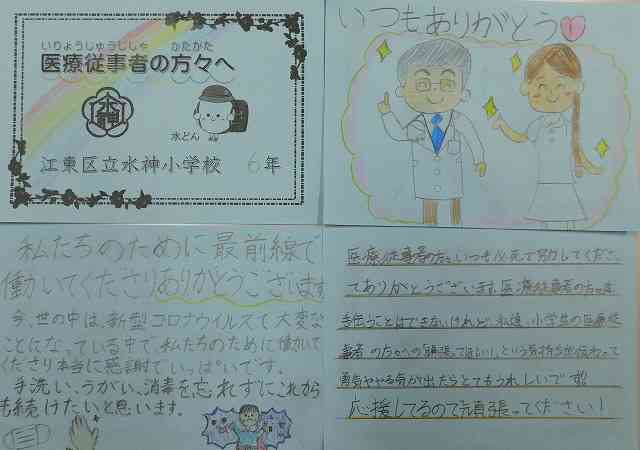 いりょうじゅうじしゃ かたがた
医療従事者の方々へ
水神
水どん
江東区立水神小学校 6年
いつもありがとう
私たちのために最前線で
働いてくださりありがとうございます
今、世の中は、新型コロナウイルスで大変な
ことになっている中で、私たちのために働いて
くださり本当に感謝でいっぱいです。
手洗い、うがい、消毒を忘れずにこれから
も続けたいと思います。
医療従事者の方々、いつも必死で努力してくださっ
てありがとうございます。医療従事者の方々を
手伝うことはできないけれど、私達、小学生の医療従
事者の方々への「頑張ってほしい」という気持ちが伝わって
勇気ややる気が出たらとてもうれしいです。
応援してるので頑張ってください!